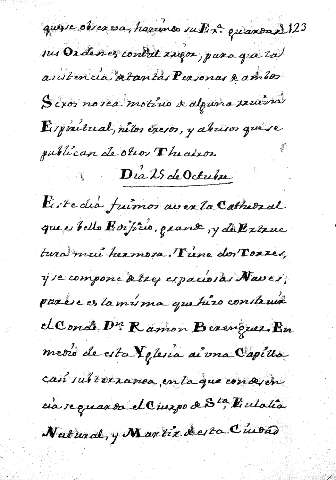 que se observa, haciendo su Ex.ª guardar 123
sus Ordenes con tal rigor, para q.e la
asistencia de tantas Personas de ambos
Sexos no sea motivo de alguna
Espiritual, ni los excesos, y abusos que se
publican de otros Theatros.
Dia 25 de Octubre
Este dia fuimos a ver la Cathedral
que es bello Edificio, grande, y de Extruc
tura mui hermosa. Tiene dos Torres,
y se compone de tres espaciosas Naves;
parese es la misma que hizo construir
el Conde D.n Ramon Berenguer. En
medio de esta Yglesia ai una Capilla
casi subterranea, en la que con desen
cia se guarda el Cuerpo de S.ta Eulalia
Natural, y Martir de esta Ciudad